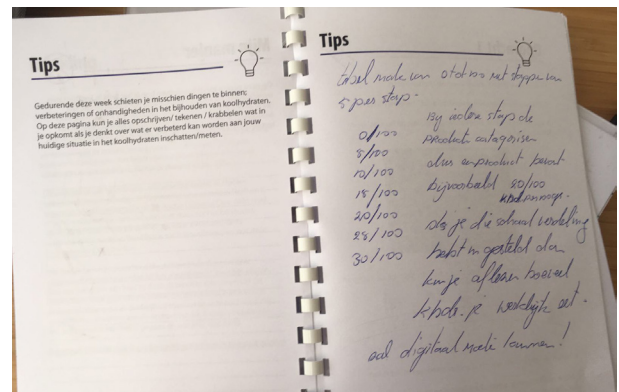 Tips
Gedurende deze week schieten je misschien dingen te binnen;
verbeteringen of onhandigheden in het bijhouden van koolhydraten.
Op deze pagina kun je alles opschrijven/ tekenen / krabbelen wat in
je opkomt als je denkt over wat er verbeterd kan worden aan jouw
huidige situatie in het koolhydraten inschatten/meten.
Tips
tabel maken van 0 tot 100 met stappen van
5 per stap.
By iedere stap de
0/100 producten categoriseren
5/100
10/100 dus een product bevat
15/100 bijvoorbeeld 20/100
20/100 als je die schaal verdeling
25/100
30/100 hebt ingesteld dan
kun je aflezen hoeveel
khdr. je werkelijk eet.
zal digitaal moeten kunnen!